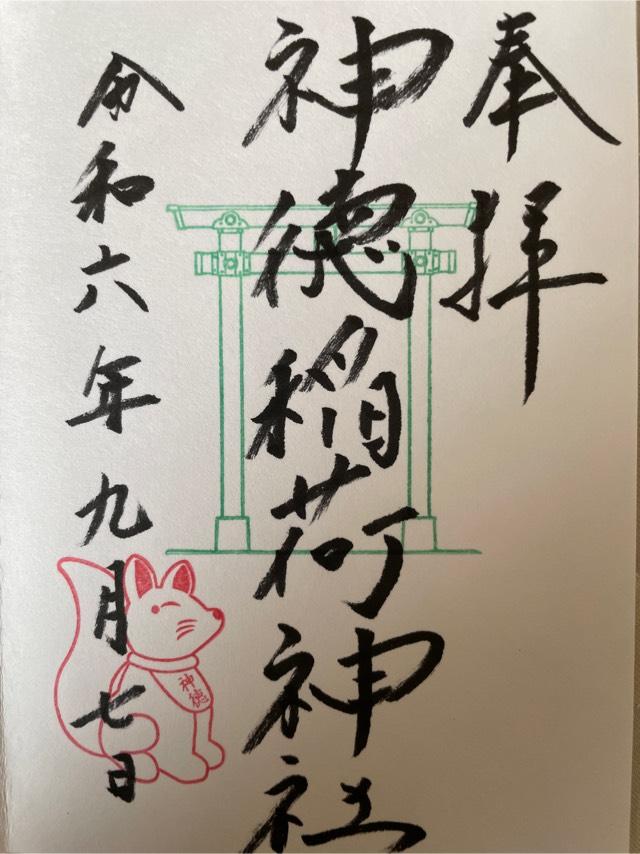 奉拝
神徳稲荷神社
令和六年九月七日
神徳